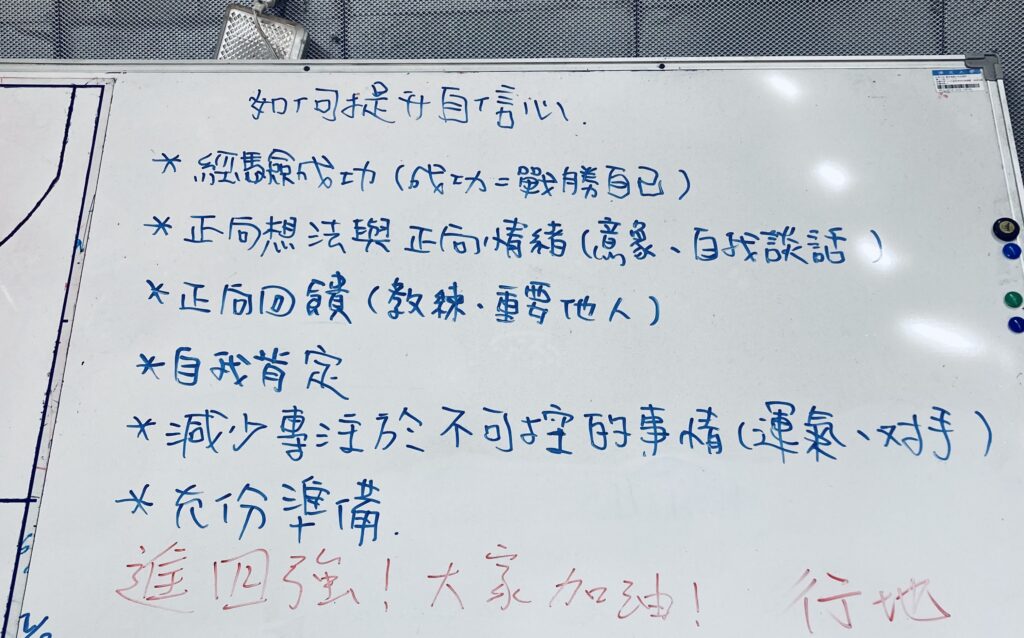 如何提升自信心.
* 經驗成功(成功=戰勝自己)
* 正向想法與正向情緒(意象、自我談話)
* 正向回饋(教練、重要他人)
* 自我肯定
* 減少專注於不可控的事情(運氣、对手)
* 充份準備.
進四強!大家加油! 行地